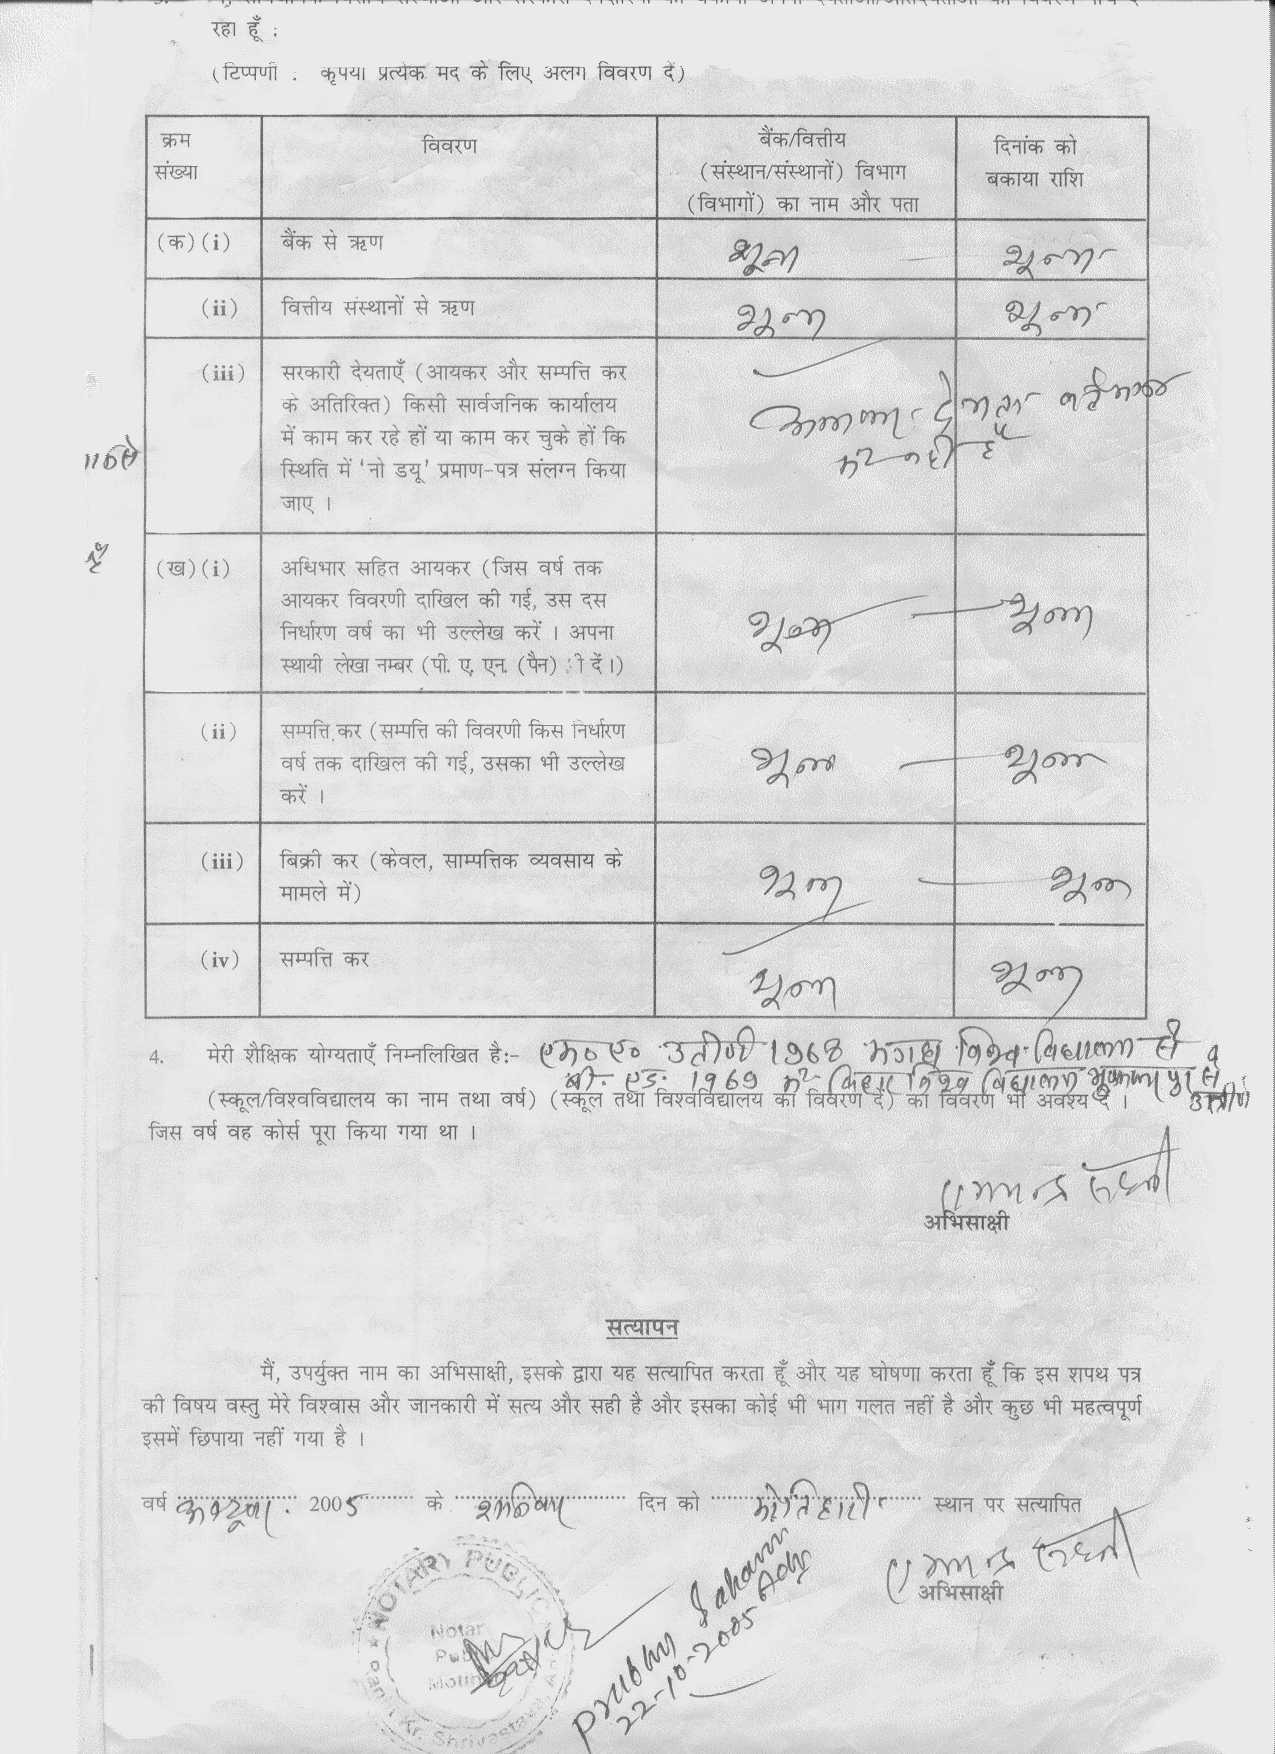 रहा हूँ :
(टिप्पणी : कृपया प्रत्येक मद के लिए अलग विवरण दें)
क्रम
संख्या
विवरण
बैंक/वित्तीय
(संस्थान/संस्थानों) विभाग
(विभागों) का नाम और पता
दिनांक को
बकाया राशि
(क)(i) बैंक से ऋण शून्य शून्य
(ii) वित्तीय संस्थानों से ऋण शून्य शून्य
(iii) सरकारी देयताएँ (आयकर और सम्पत्ति कर
के अतिरिक्त) किसी सार्वजनिक कार्यालय
में काम कर रहे हों या काम कर चुके हों कि
स्थिति में 'नो डयू' प्रमाण-पत्र संलग्न किया
जाए ।
नहीं है
(ख)(i) अधिभार सहित आयकर (जिस वर्ष तक
आयकर विवरणी दाखिल की गई, उस दस
निर्धारण वर्ष का भी उल्लेख करें । अपना
स्थायी लेखा नम्बर (पी. ए. एन. (पैन) ी दें।)
शून्य शून्य
(ii) सम्पत्ति कर (सम्पत्ति की विवरणी किस निर्धारण
वर्ष तक दाखिल की गई, उसका भी उल्लेख
करें ।
शून्य शून्य
(iii) बिक्री कर (केवल, साम्पत्तिक व्यवसाय के
मामले में)
शून्य शून्य
(iv) सम्पत्ति कर शून्य शून्य
4. मेरी शैक्षिक योग्यताएँ निम्नलिखित है:- एम० ए० उतीर्ण 1968 मगध विश्व विद्यालय से व
बी. एड. 1969 में बिहार विश्व विद्यालय मुजफ्फरपुर से उत्तीर्ण
(स्कूल/विश्वविद्यालय का नाम तथा वर्ष) (स्कूल तथा विश्वविद्यालय का विवरण दें) का विवरण भी अवश्य दें ।
जिस वर्ष वह कोर्स पूरा किया गया था ।
अभिसाक्षी
सत्यापन
मैं, उपर्युक्त नाम का अभिसाक्षी, इसके द्वारा यह सत्यापित करता हूँ और यह घोषणा करता हूँ कि इस शपथ पत्र
की विषय वस्तु मेरे विश्वास और जानकारी में सत्य और सही है और इसका कोई भी भाग गलत नहीं है और कुछ भी महत्वपूर्ण
इसमें छिपाया नहीं गया है ।
वर्ष अक्टूबर 2005 के शनिवार दिन को मोतिहारी स्थान पर सत्यापित
अभिसाक्षी
NOTARY PUBLIC
Kr. Shrivastava
Prabhu Sharan Adv
22-10-2005